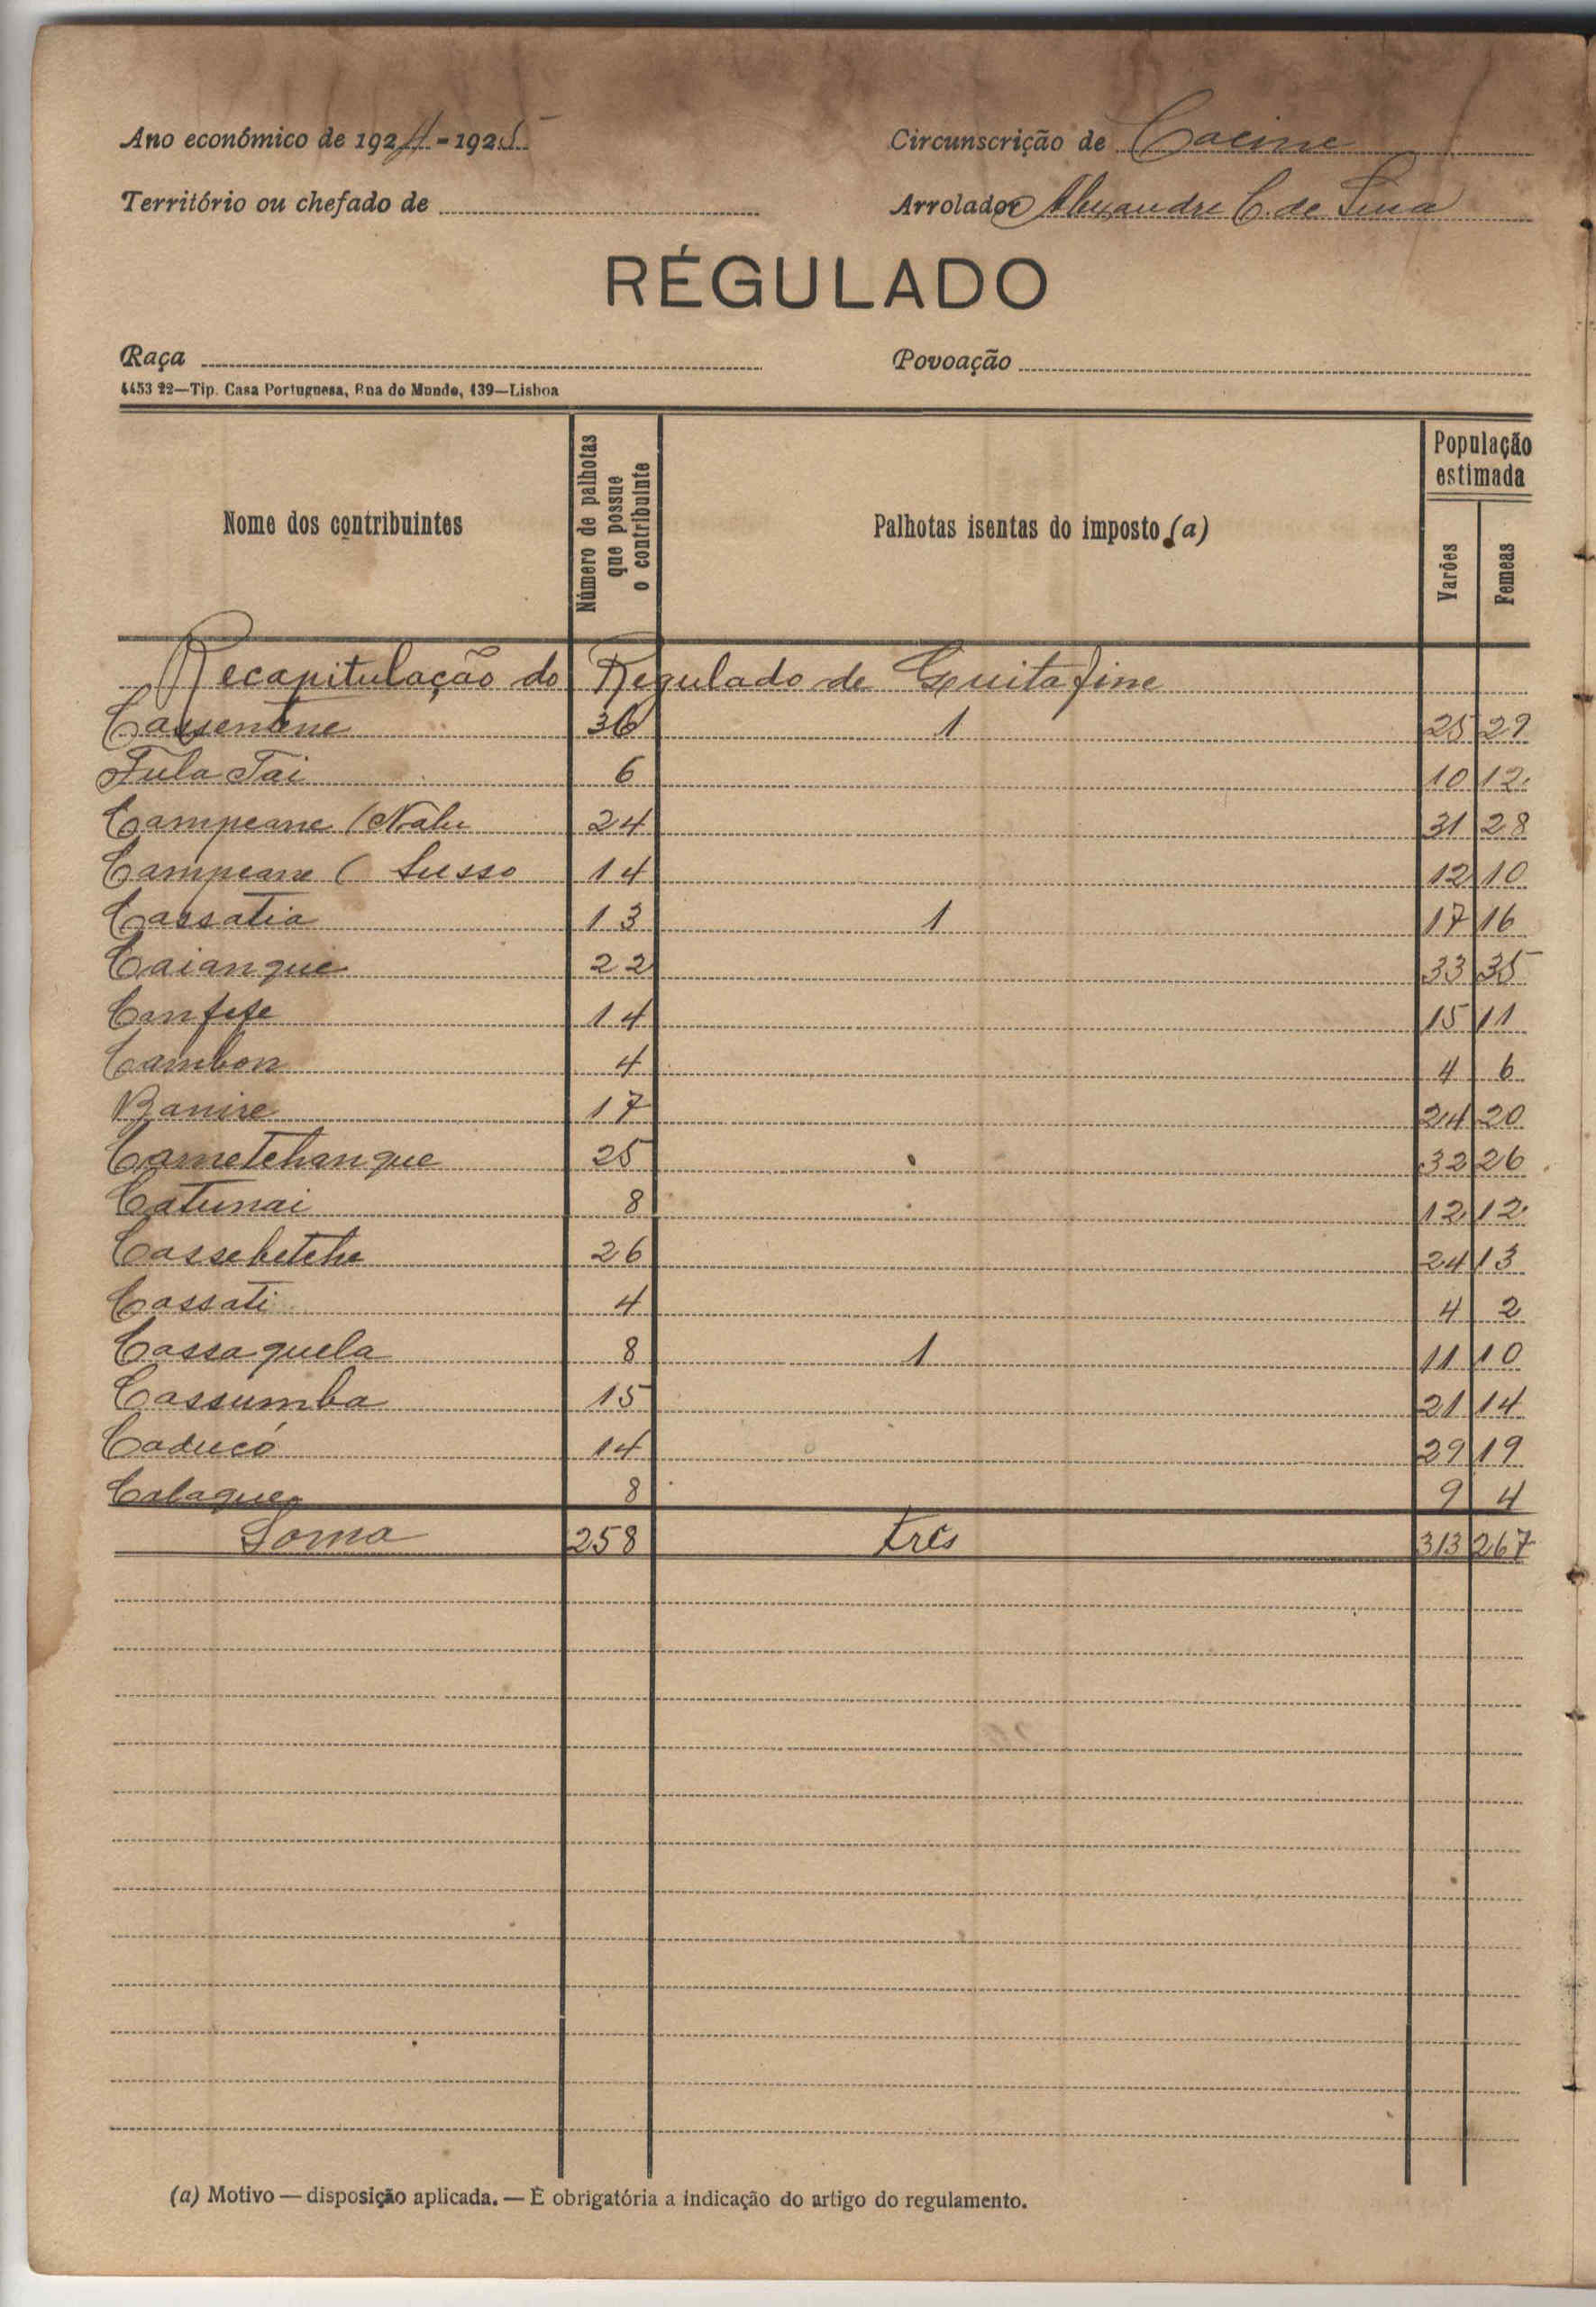 Ano económico de 1924-1925
Circunscrição de Cacine
Território ou chefado de
Arrolador Alexandre C. de Lima
RÉGULADO
Raça
Povoação
4453 22—Tip. Casa Portuguesa, Rua do Mundo, 139—Lisboa
Nome dos contribuintes
Número de palhotas que possue o contribuinte
Palhotas isentas do imposto (a)
População estimada
Varões
Femeas
Recapitulação do Regulado de Guitafine
Cassentene 36 1 25 29
Fula Tai 6 10 12
Campeane (Nalu 24 31 28
Campeane ( Susso 14 12 10
Cassatia 13 1 17 16
Caianque 22 33 35
Canfefe 14 15 11
Cambon 4 4 6
Banire 17 24 20
Cametchanque 25 32 26
Catunai 8 12 12
Cassebetche 26 24 13
Cassati 4 4 2
Cassaquela 8 1 11 10
Cassumba 15 21 14
Caducó 14 29 19
Calaque 8 9 4
Soma 258 três 313 267
(a) Motivo — disposição aplicada. — È obrigatória a indicação do artigo do regulamento.